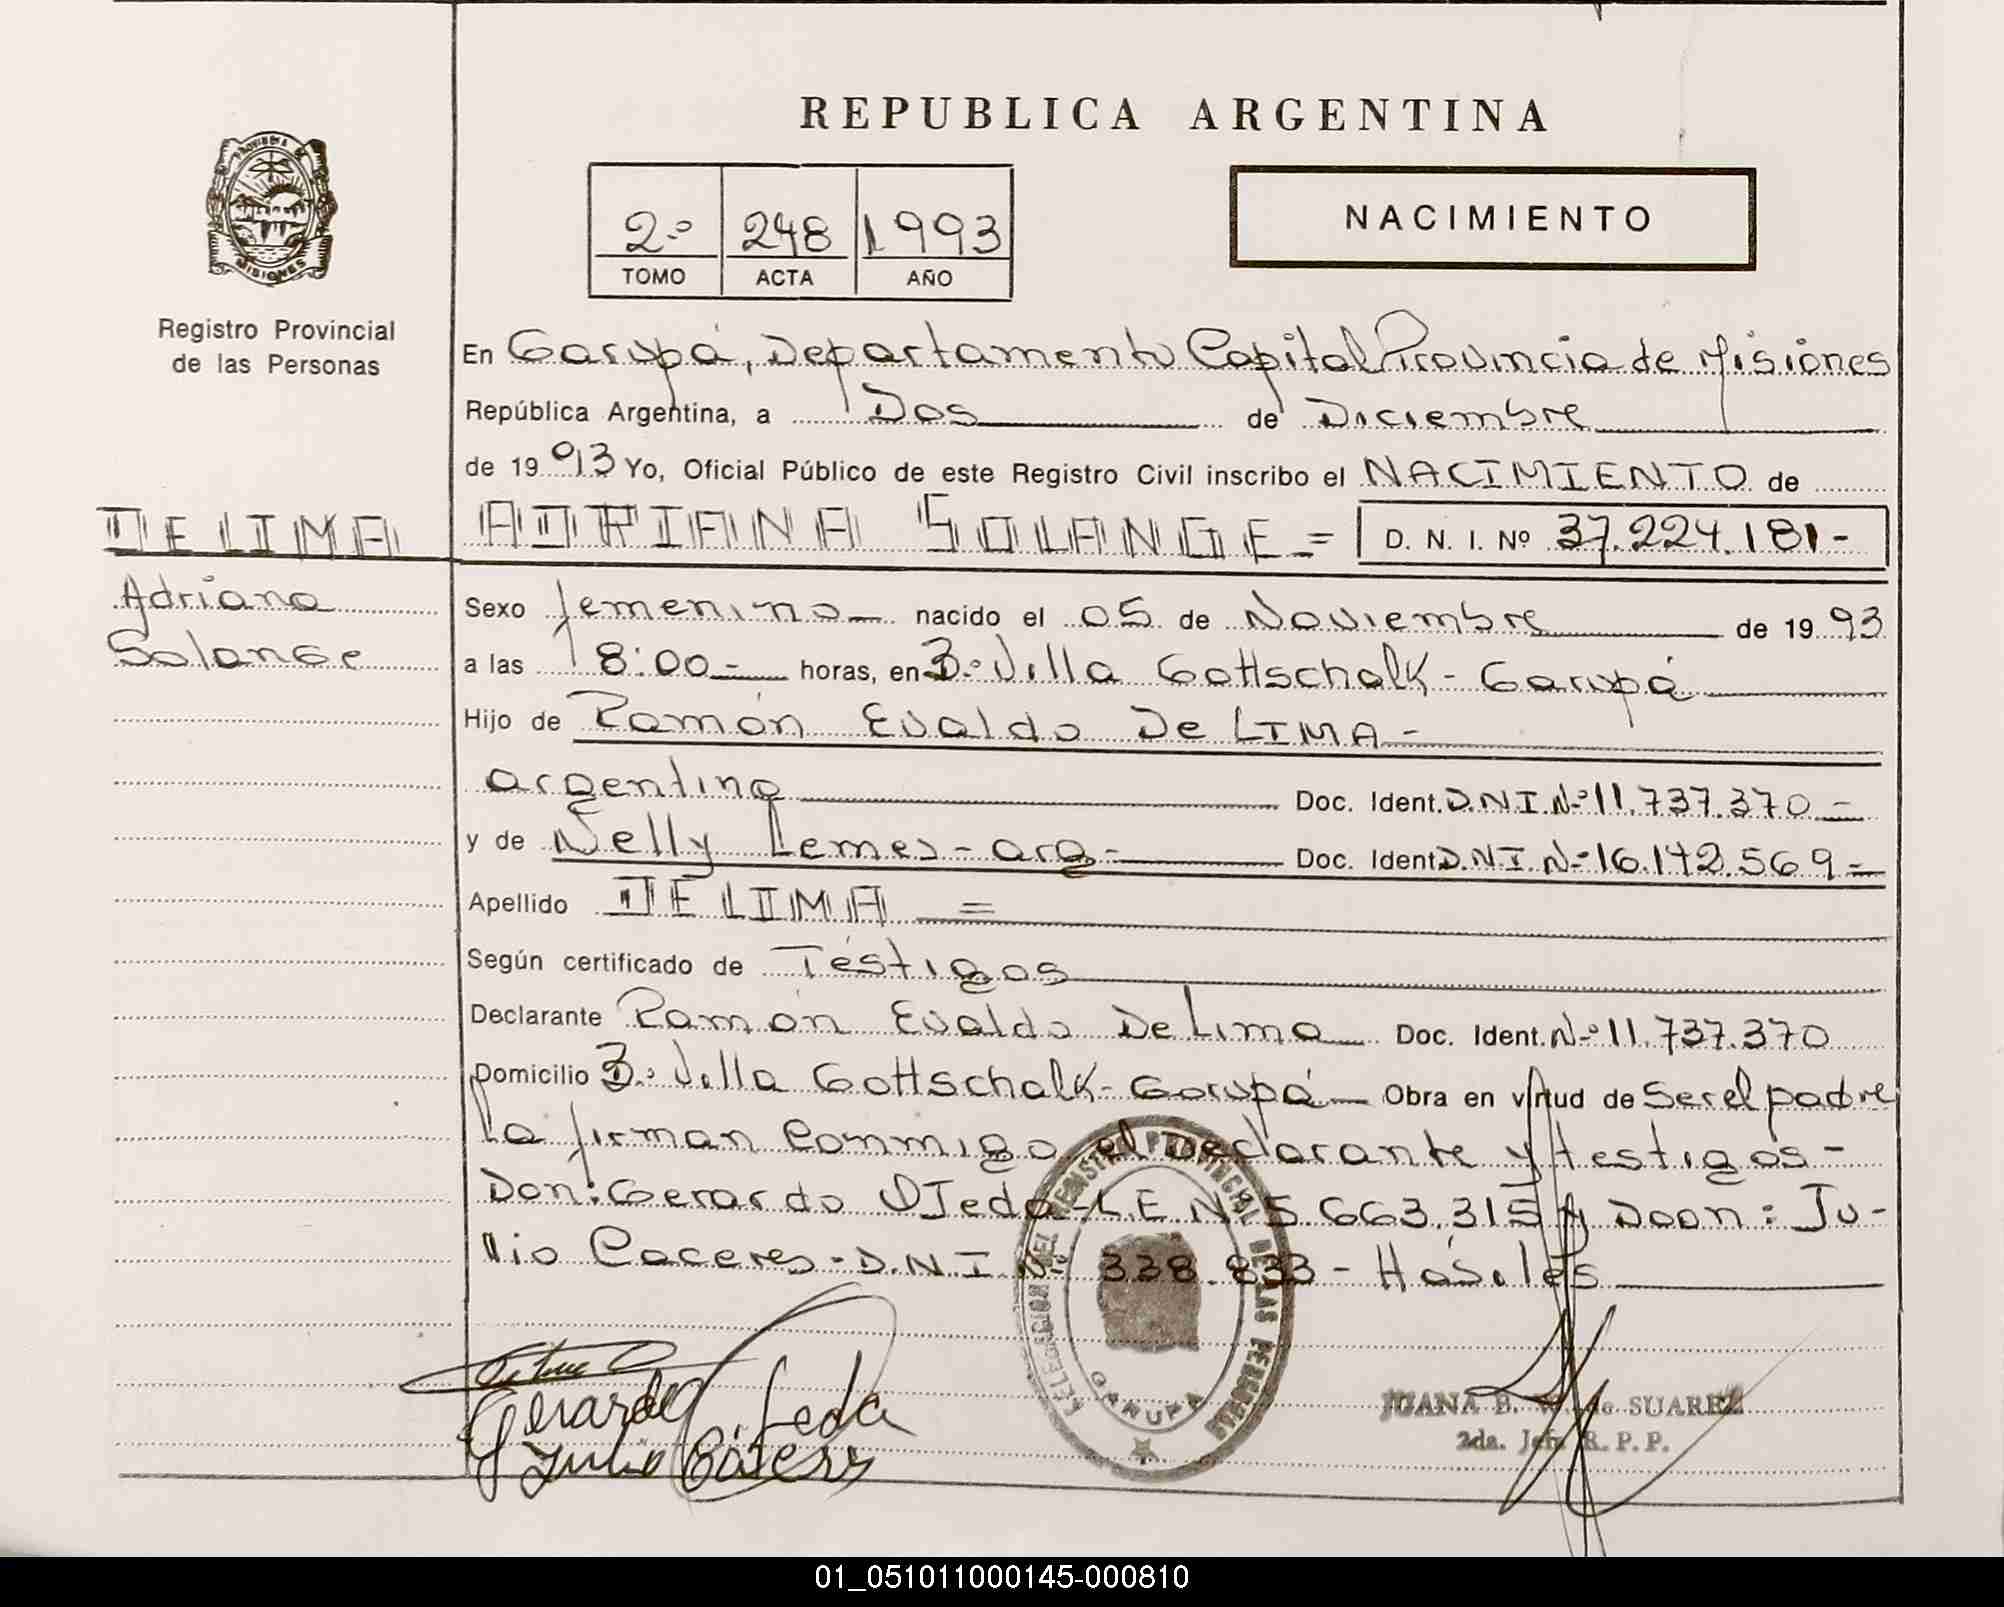 REPUBLICA ARGENTINA
PROVINCIA DE
MISIONES
Registro Provincial
de las Personas
2º 248 1993
TOMO ACTA AÑO
NACIMIENTO
En Garupá, Departamento Capital Provincia de Misiones
República Argentina, a Dos de Diciembre
de 19 93 Yo, Oficial Público de este Registro Civil inscribo el NACIMIENTO de
DE LIMA ADRIANA SOLANGE = D. N. I. Nº 37.224.181-
Adriana
Solange
Sexo femenino nacido el 05 de Noviembre de 19 93
a las 8:00- horas, en B:º Villa Gottschalk - Garupá
Hijo de Ramón Evaldo De LIMA -
argentino Doc. Ident. D.N.I.Nº 11.737.370 -
y de Nelly Lemes - arg - Doc. Ident D.N.I.Nº 16.142.569 =
Apellido DE LIMA =
Según certificado de Téstigos
Declarante Ramón Evaldo De Lima Doc. Ident. Nº 11.737.370
Domicilio B:º Villa Gottschalk - Garupá Obra en virtud de Ser el padre
La firman Conmigo el Declarante y testigos -
Don: Gerardo OJeda - L.E.Nº 5.663.315 y Doon: Ju-
lio Caceres - D.N.I Nº 338.833 - Hásiles
DELEGACION DEL REGISTRO PROVINCIAL DE LAS PERSONAS
GARUPA
Gerardo Ojeda
Julio Cáseres
JUANA B. de SUAREZ
2da. Jefe R. P. P.
01_051011000145-000810